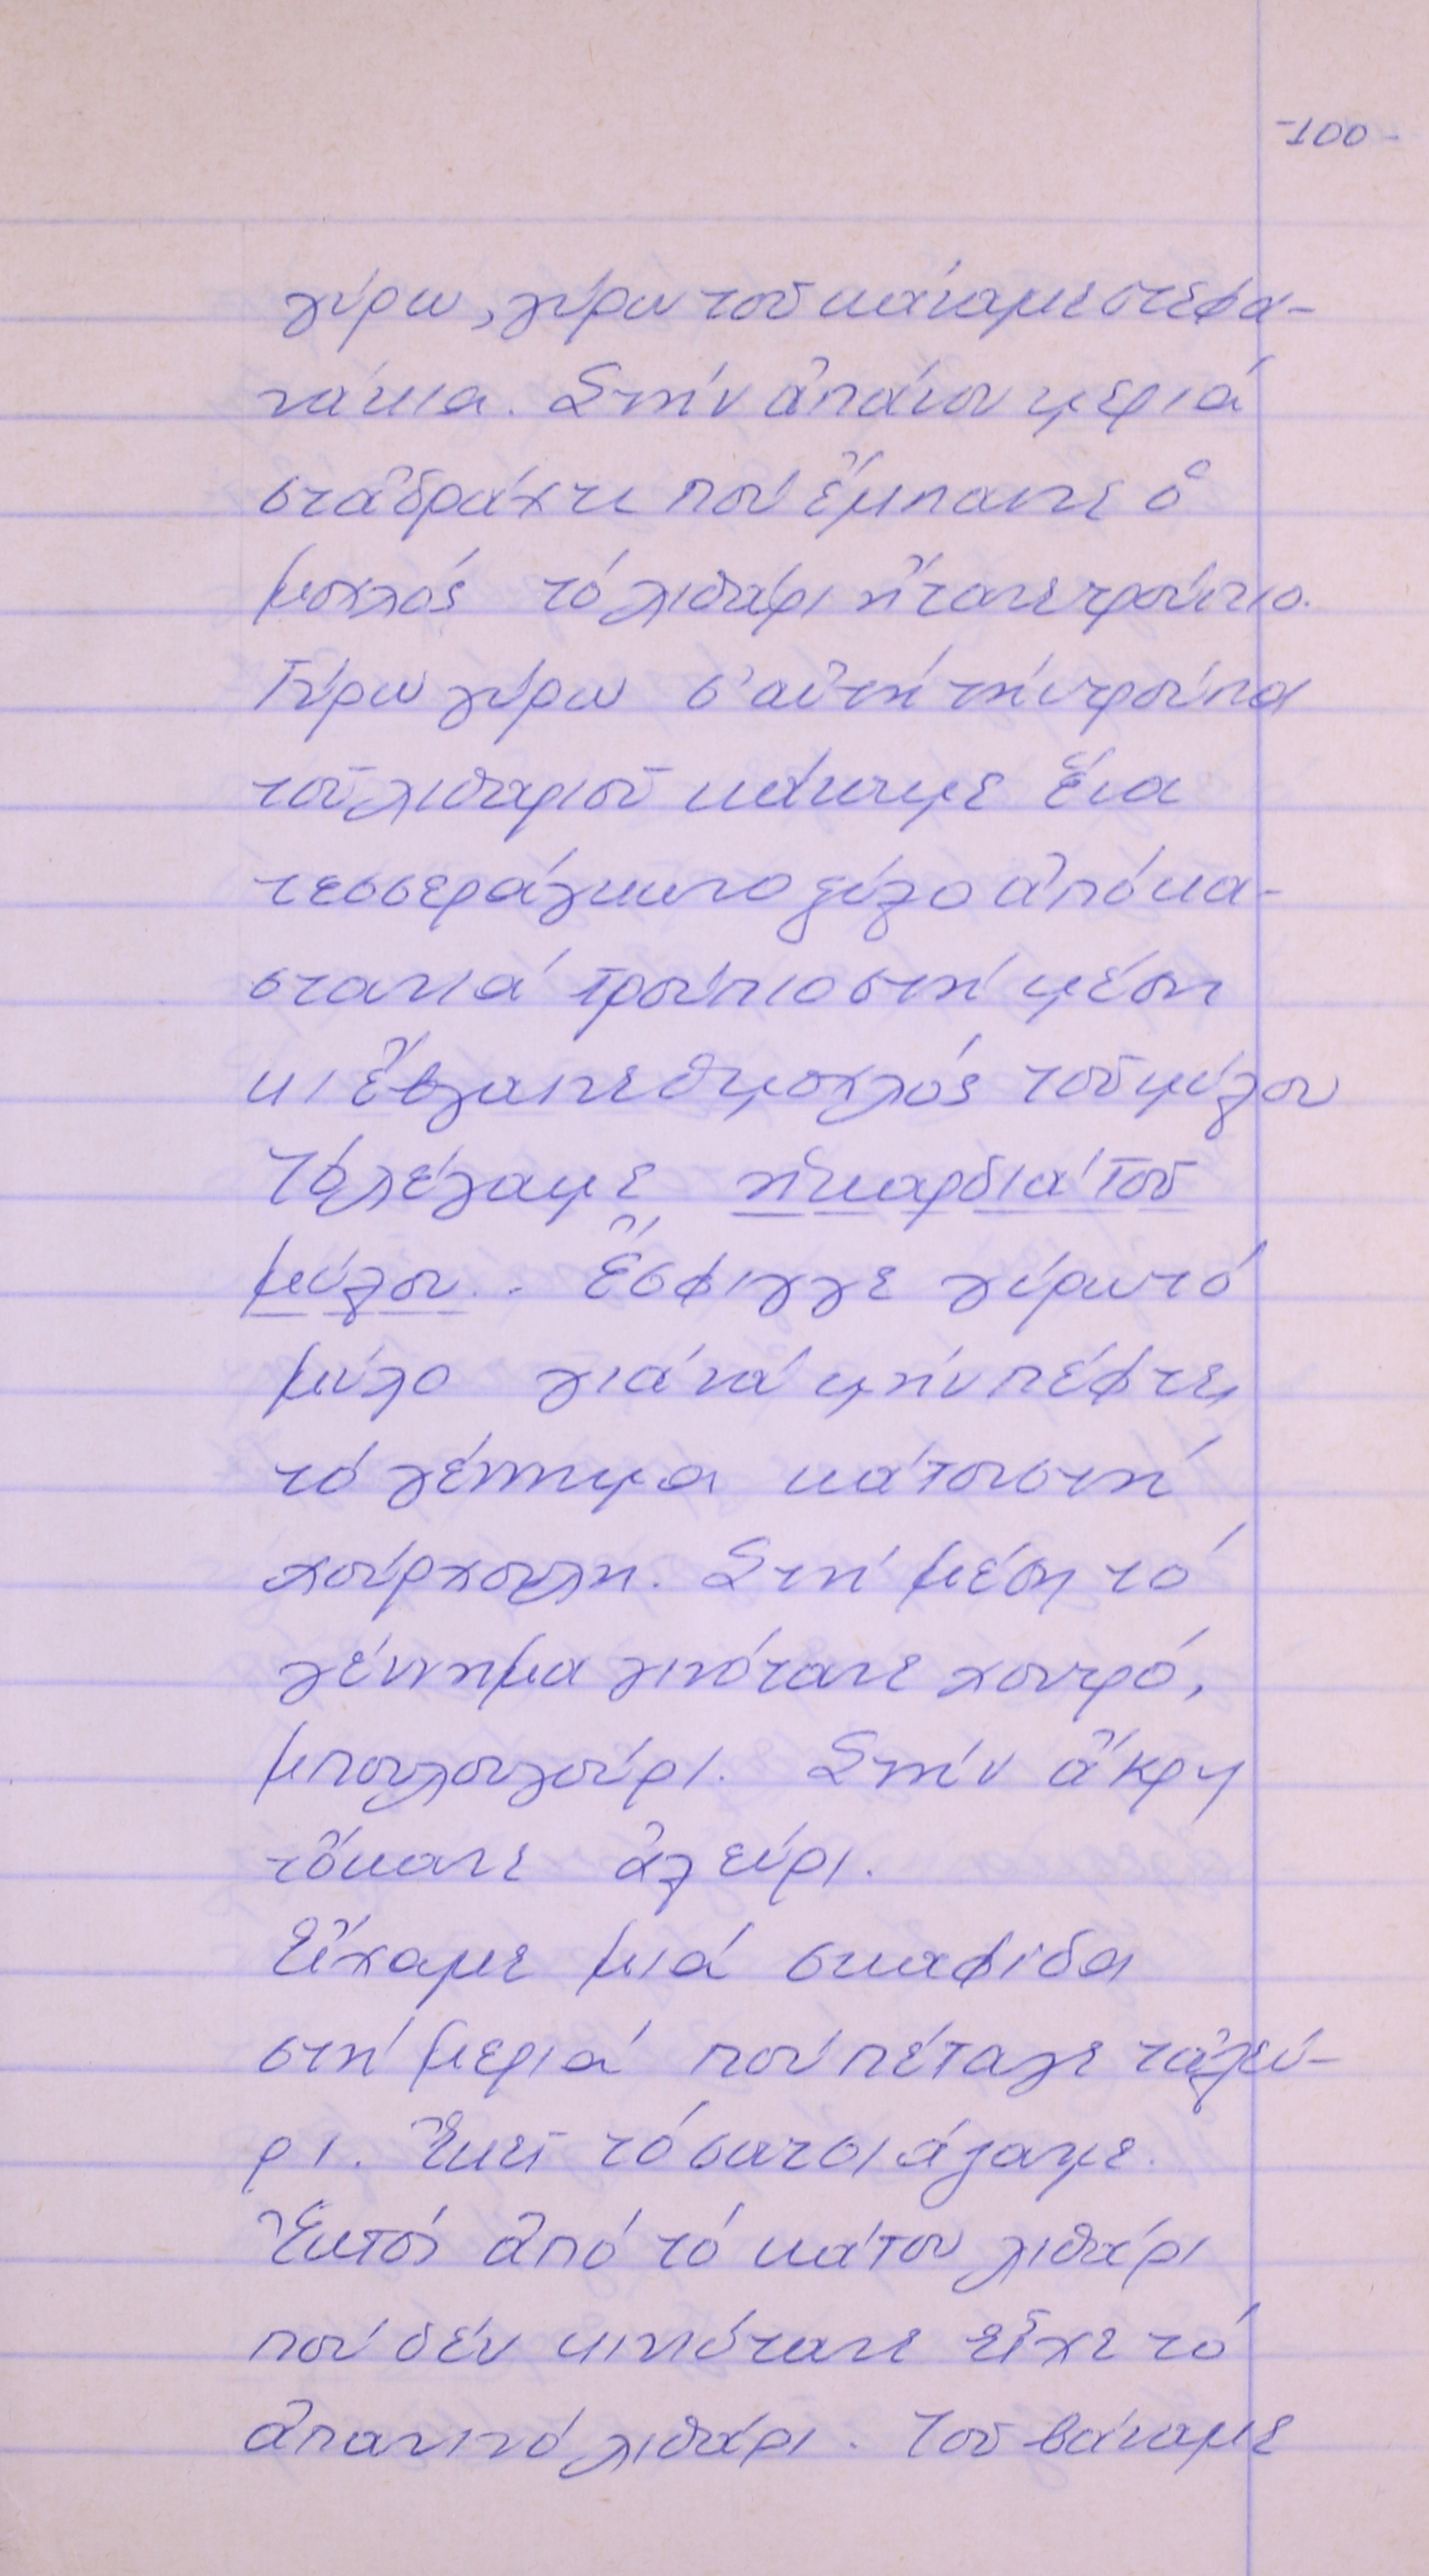 -100-
γύρω, γύρω τοῦ κάναμε στεφα-
νάκια. Στήν ἀπάνου μεριά
στἀδράχτι πού ἔμπαινε ὁ
μοχλός τό λιθάρι ἤτανε τρούπιο.
Γύρω γύρω σ' αὐτή τήν τρούπα
τοῦ λιθαριοῦ κάναμε ἕνα
τεσσεράγκωνο ξύλο ἀπό κα-
στανιά τρούπιο στή μέση
κι ἔβγαινε ὁ μοχλός τοῦ μύλου
Τό λέγαμε ἡ καρδιά τοῦ
μύλου. Ἔσφιγγε γύρω τό
μύλο γιά νά μήν πέφτει
τό γέννημα κάτου στή
χούρχουλη. Στή μέση τό
γέννημα γινότανε χοντρό,
μπουλουγούρι. Στήν ἄκρη
τὄκανε ἀλεύρι.
Εἴχαμε μιά σκαφίδα
στή μεριά πού πέταγε τἀλεύ-
ρι. Ἐκεῖ τό σατσιάζαμε.
Ἐκτός ἀπό τό κάτου λιθάρι
πού δέν κινιότανε εἶχε τό
ἀπανινό λιθάρι. Τοῦ βάναμε